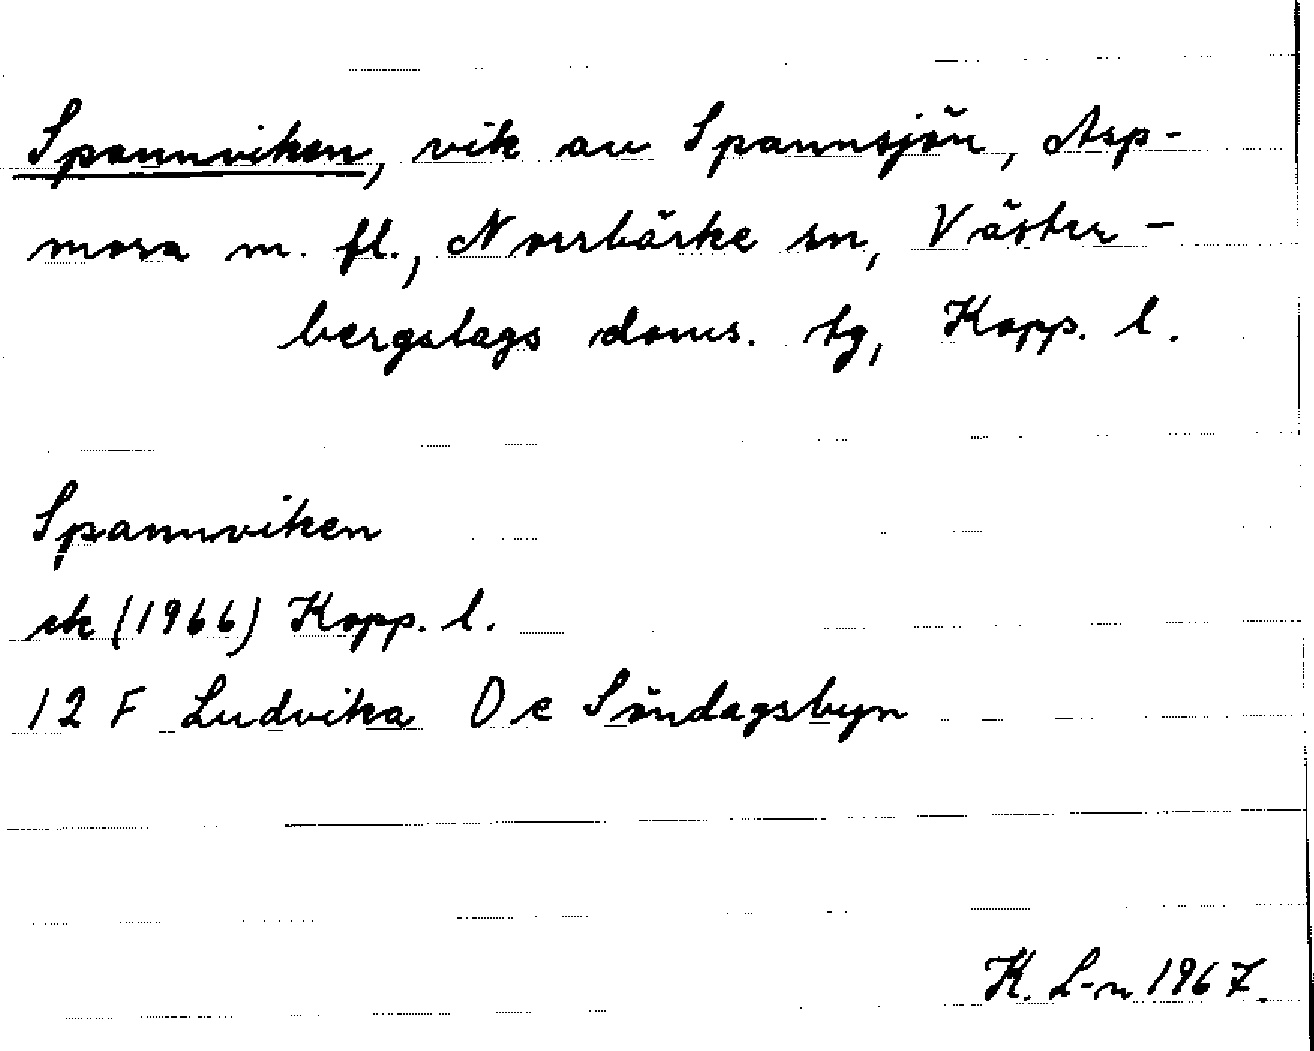 Spannviken, vik av Spannsjön, Asp-
mora m. fl., Norrbärke sn, Väster-
bergslags doms. tg, Kopp. l.
Spannviken
ek (1966) Kopp. l.
12 F Ludvika 0 e Söndagsbyn
K. L-n 1967